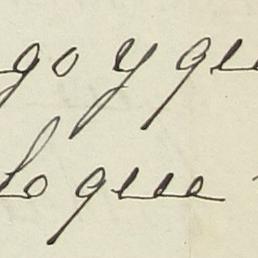 go y que
lo que